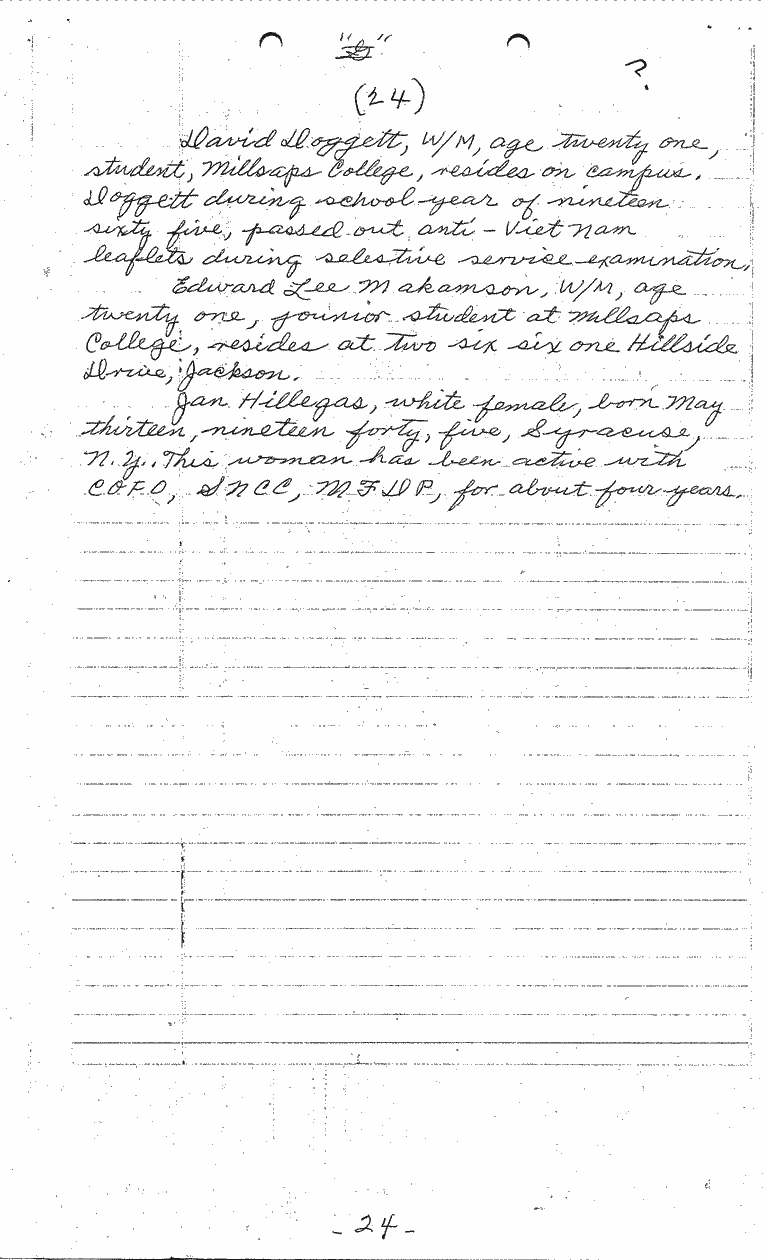 (24)
?
David Doggett, W/M, age twenty one,
student, Millsaps College, resides on campus.
Doggett during school year of nineteen
sixty five, passed out anti-Viet Nam
leaflets during selestive service examination.
Edward Lee Makamson, W/M, age
twenty one, jounior student at Millsaps
College, resides at two six six one Hillside
Drive, Jackson.
Jan Hillegas, white female, born May
thirteen, nineteen forty, five, Syracuse,
N.Y.. This woman has been active with
COFO, SNCC, MFDP, for about four years.
-24-